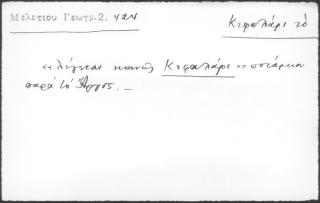 Μελετίου Γεωγρ.2, 424
Κεφαλάρι τό
«λέγεται κοινῶς Κεφαλάρι» ποτάμιον
παρά τό Ἄργος. —